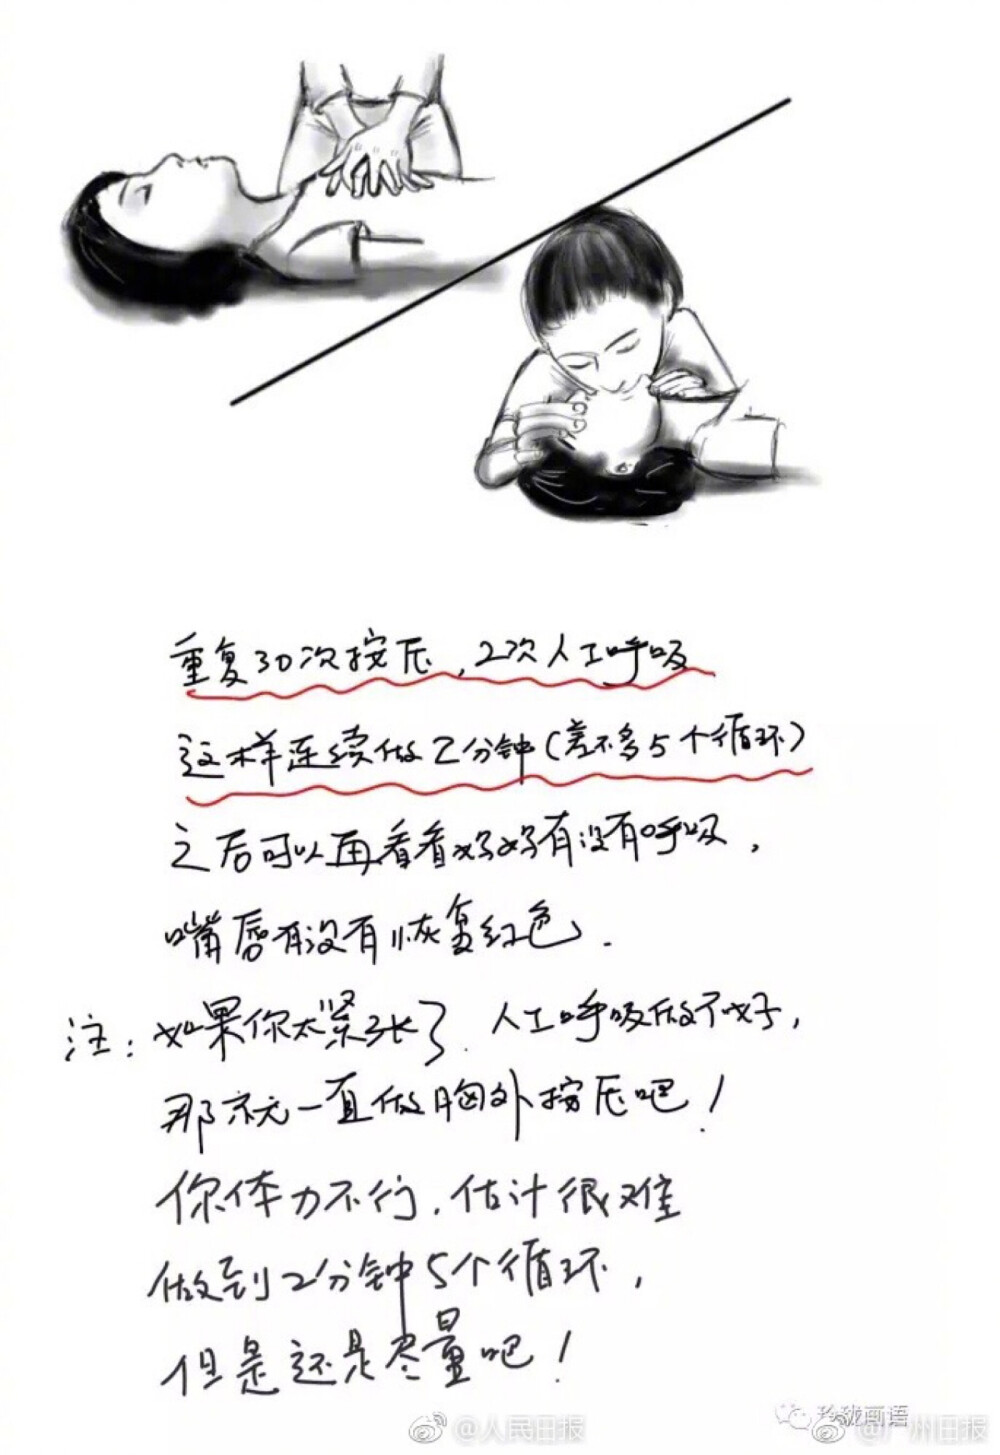 重复30次按压,2次人工呼吸
这样连续做2分钟(差不多5个循环)
之后可以再看看妈妈有没有呼吸,
嘴唇有没有恢复红色.
注:如果你太紧张了.人工呼吸做不好,
那就一直做胸外按压吧!
你体力不行.估计很难
做到2分钟5个循环,
但是还是尽量吧!
玲珑画语
@人民日报
@广州日报